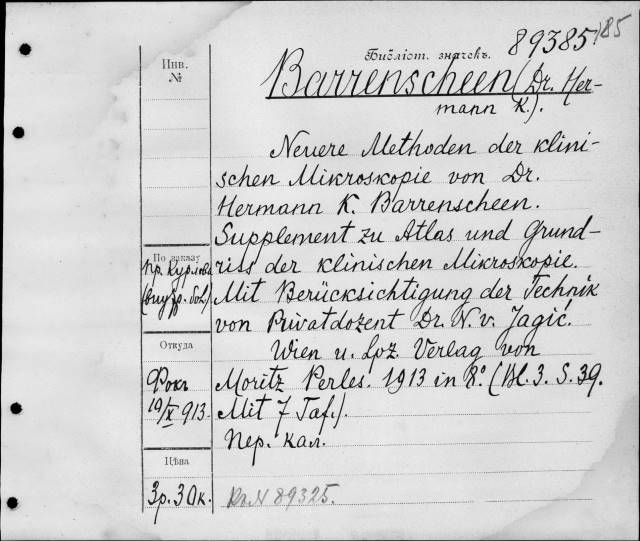 Библіот. значекъ. 89385
185
Инв.
№
Barrenscheen (Dr. Her-
mann K.).
Neuere Methoden der klini-
schen Mikroskopie von Dr.
Hermann K. Barrenscheen.
Supplement zu Atlas und Grund-
riss der klinischen Mikroskopie.
Mit Berücksichtigung der Technik
von Privatdozent Dr. N. v. Jagić.
Wien u. Lpz. Verlag von
Moritz Perles. 1913 in 8º. (Bl. 3. S. 39.
Mit 7 Taf.).
Пер. кал.
По заказу
пр. Курлова
Откуда
Фокъ
19/X 913.
Цѣна
3р. 30к.
89325.